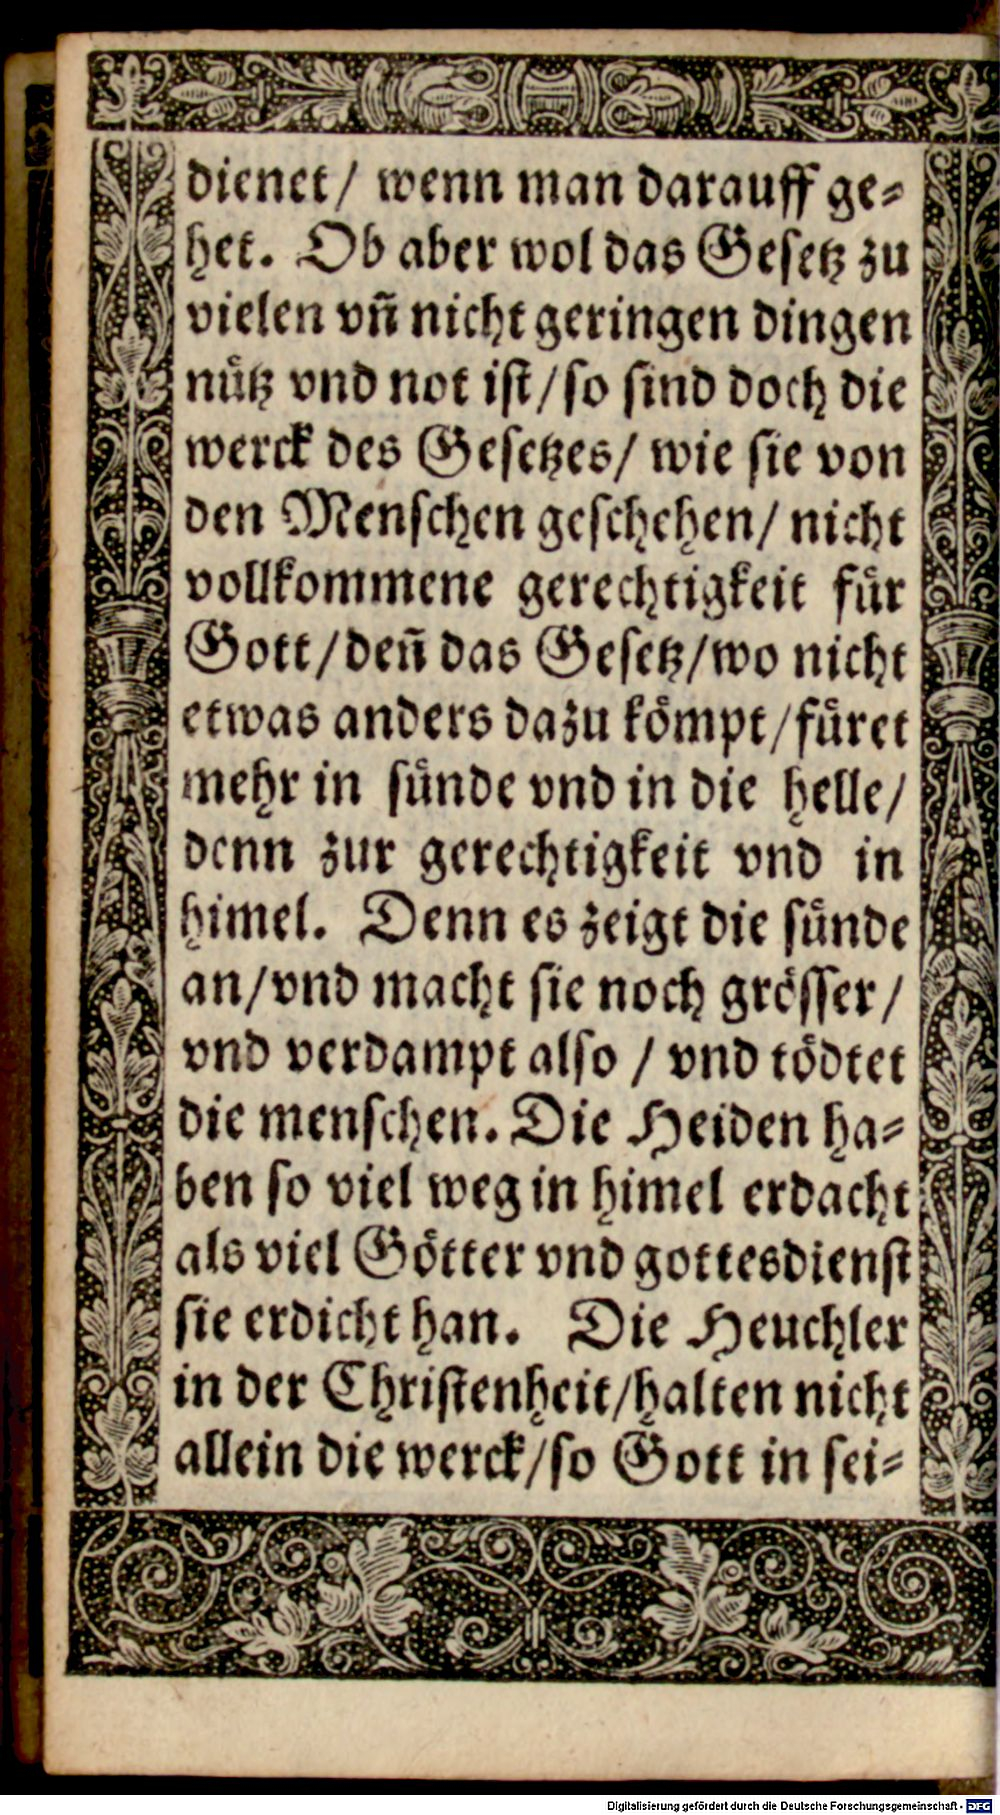 dienet/ wenn man darauff ge⸗
het. Ob aber wol das Gesetz zu
vielen vn̄ nicht geringen dingen
nuͤtz vnd not ist/so sind doch die
werck des Gesetzes/ wie sie von
den Menschen geschehen/ nicht
vollkommene gerechtigkeit fuͤr
Gott/den̄ das Gesetz/wo nicht
etwas anders dazu koͤmpt/fuͤret
mehr in suͤnde vnd in die helle/
denn zur gerechtigkeit vnd in
himel. Denn es zeigt die suͤnde
an/vnd macht sie noch groͤsser/
vnd verdampt also / vnd toͤdtet
die menschen. Die Heiden ha⸗
ben so viel weg in himel erdacht
als viel Goͤtter vnd gottesdienst
sie erdicht han. Die Heuchler
in der Christenheit/halten nicht
allein die werck/so Gott in sei⸗
Digitalisierung gefördert durch die Deutsche Forschungsgemeinschaft - DFG